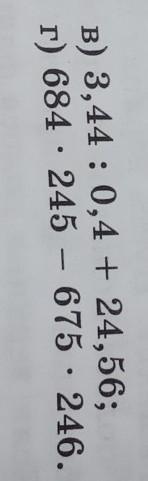 в) 3,44 : 0,4 + 24,56;
г) 684 · 245 − 675 · 246.